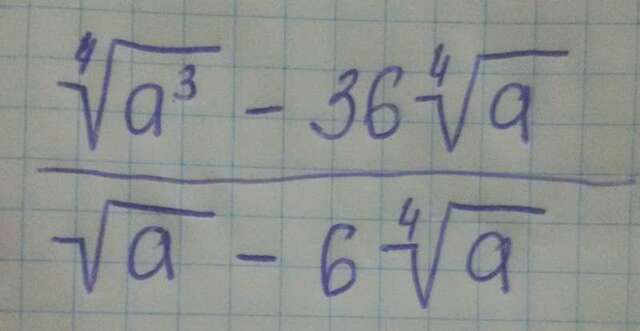 ⁴√a³ - 36 ⁴√a
√a - 6 ⁴√a